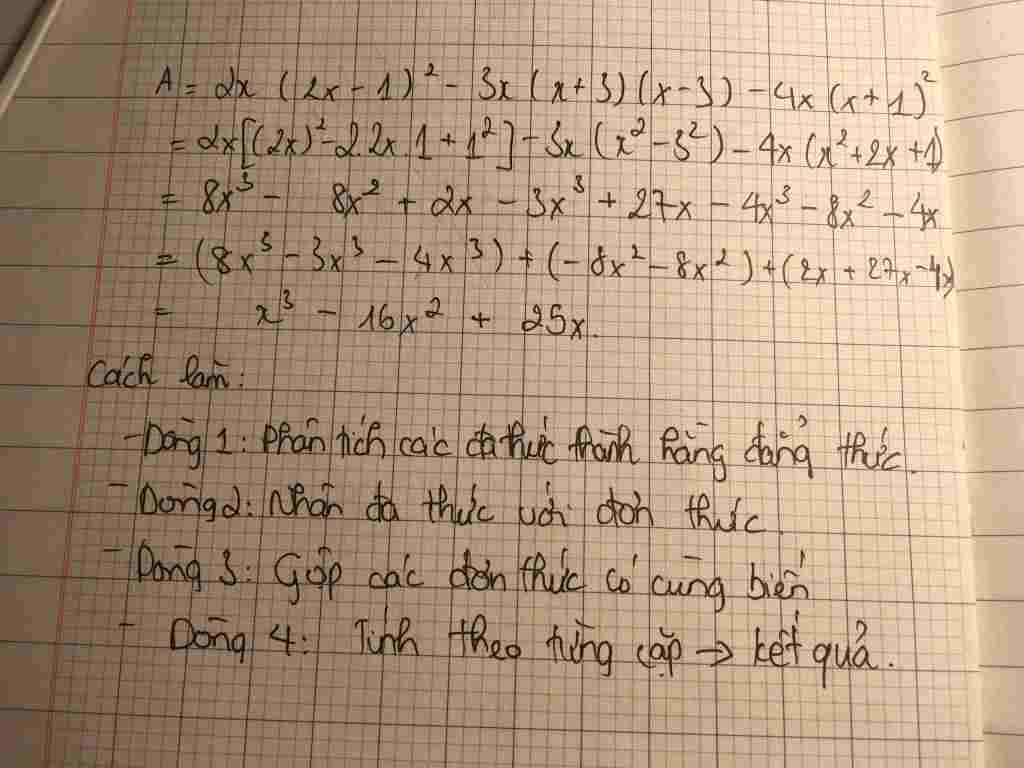 A = 2x (2x - 1)² - 3x (x + 3) (x - 3) - 4x (x + 1)²
= 2x [(2x)² - 2.2x.1 + 1²] - 3x (x² - 3²) - 4x (x² + 2x + 1)
= 8x³ - 8x² + 2x - 3x³ + 27x - 4x³ - 8x² - 4x
= (8x³ - 3x³ - 4x³) + (-8x² - 8x²) + (2x + 27x - 4x)
= x³ - 16x² + 25x.
Cách làm:
- Dòng 1: Phân tích các đa thức thành hằng đẳng thức.
- Dòng 2: Nhân đa thức với đơn thức.
- Dòng 3: Gộp các đơn thức có cùng biến
- Dòng 4: Tính theo từng cặp → kết quả.